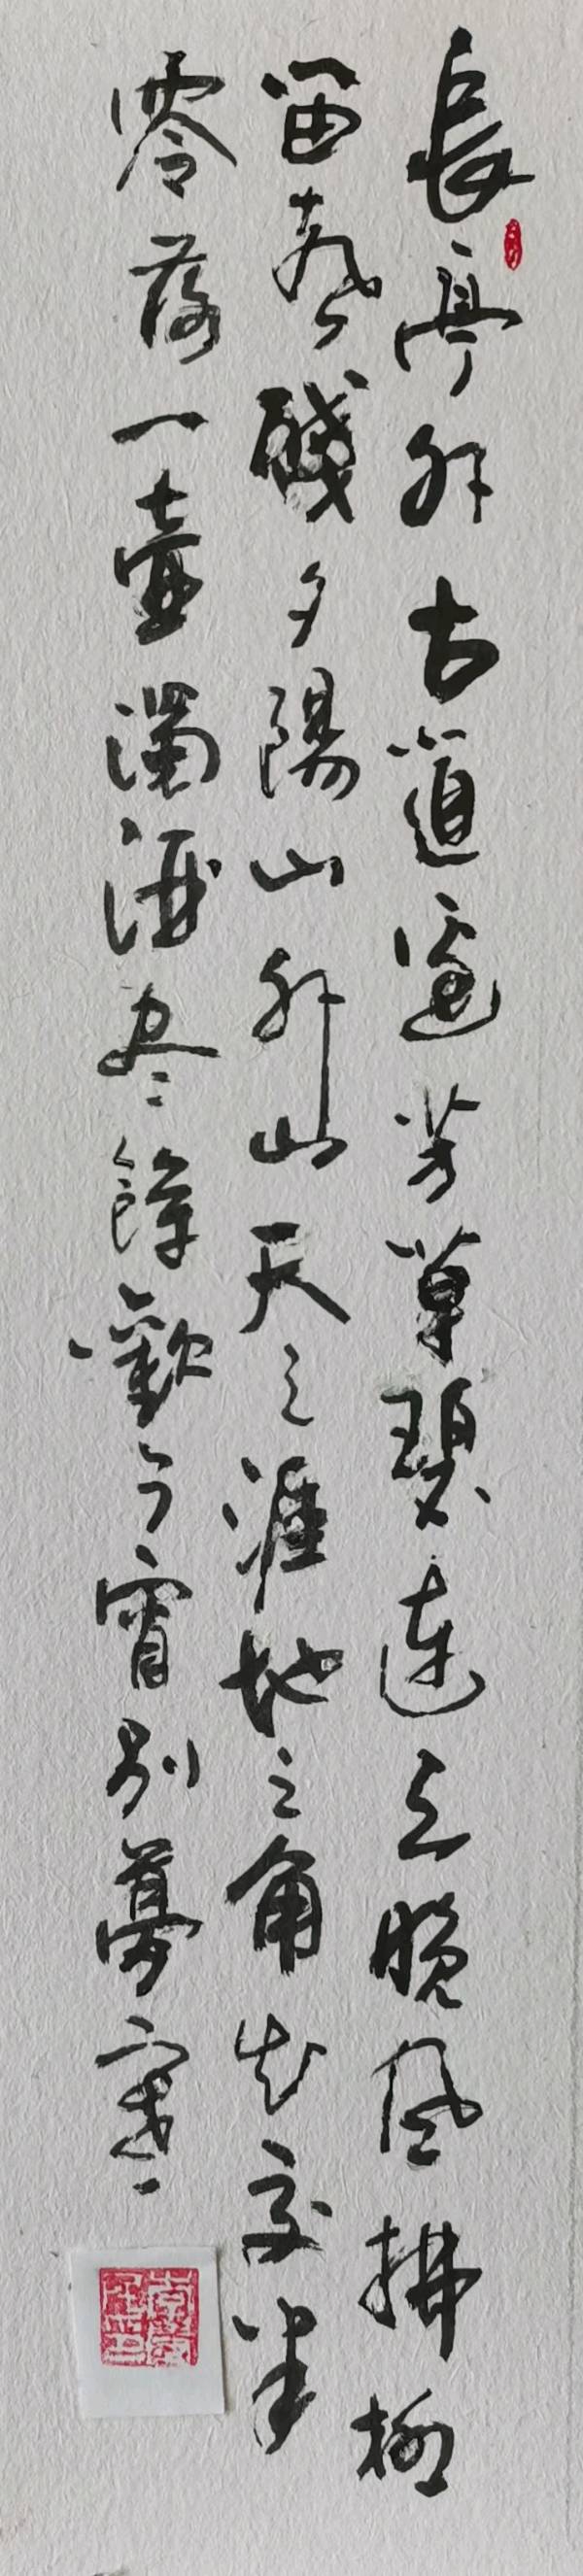 長亭外古道邊芳草碧連天晚風拂柳
笛聲殘夕陽山外山天之涯地之角知交半
零落一壺濁酒尽餘歡今宵别夢寒